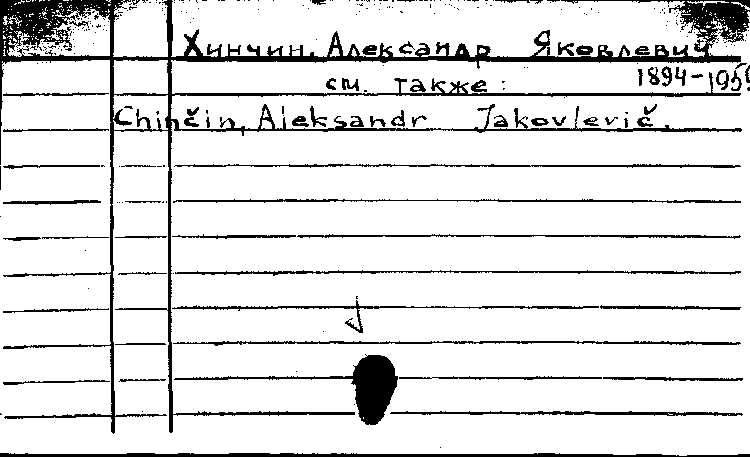 Хинчин, Александр Яковлевич
см. также: 1894-1959
Chinčin, Aleksandr Jakovlevič.